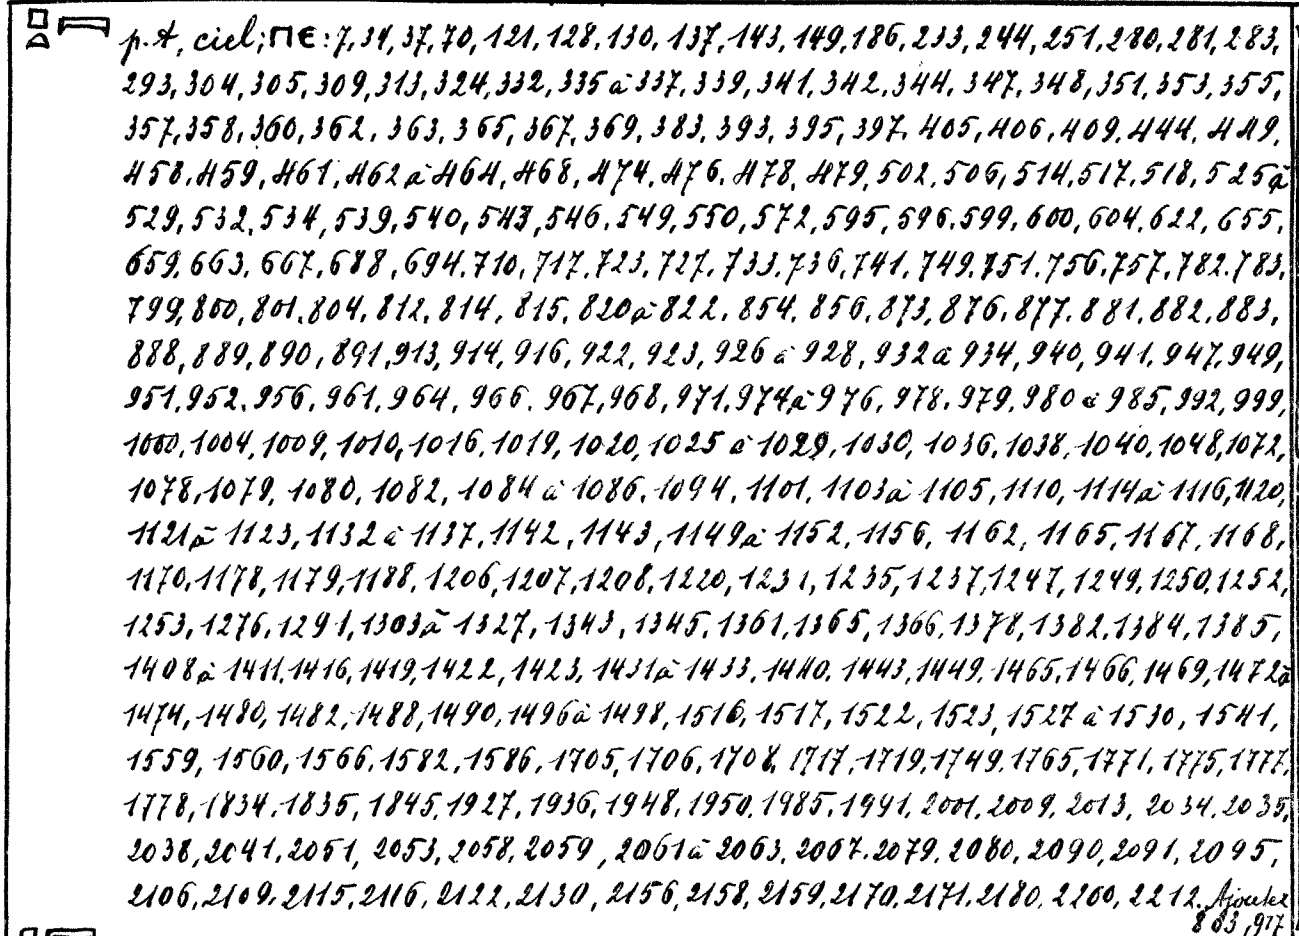 𓊪𓏏𓇯 p.t, ciel; ΠЄ: 7, 34, 37, 70, 121, 128, 130, 137, 143, 149, 186, 233, 244, 251, 280, 281, 283,
293, 304, 305, 309, 313, 324, 332, 335 à 337, 339, 341, 342, 344, 347, 348, 351, 353, 355,
357, 358, 360, 362, 363, 365, 367, 369, 383, 393, 395, 397, 405, 406, 409, 444, 449,
458, 459, 461, 462 à 464, 468, 474, 476, 478, 479, 502, 506, 514, 517, 518, 525 à
529, 532, 534, 539, 540, 543, 546, 549, 550, 572, 595, 596, 599, 600, 604, 622, 655,
659, 663, 667, 688, 694, 710, 717, 723, 727, 733, 736, 741, 749, 751, 756, 757, 782, 783,
799, 800, 801, 804, 812, 814, 815, 820 à 822, 854, 856, 873, 876, 877, 881, 882, 883,
888, 889, 890, 891, 913, 914, 916, 922, 923, 926 à 928, 932 à 934, 940, 941, 947, 949,
951, 952, 956, 961, 964, 966, 967, 968, 971, 974 à 976, 978, 979, 980 à 985, 992, 999,
1000, 1004, 1009, 1010, 1016, 1019, 1020, 1025 à 1029, 1030, 1036, 1038, 1040, 1048, 1072,
1078, 1079, 1080, 1082, 1084 à 1086, 1094, 1101, 1103 à 1105, 1110, 1114 à 1116, 1120,
1121 à 1123, 1132 à 1137, 1142, 1143, 1149 à 1152, 1156, 1162, 1165, 1167, 1168,
1170, 1178, 1179, 1188, 1206, 1207, 1208, 1220, 1231, 1235, 1237, 1247, 1249, 1250, 1252,
1253, 1276, 1291, 1303 à 1327, 1343, 1345, 1361, 1365, 1366, 1378, 1382, 1384, 1385,
1408 à 1411, 1416, 1419, 1422, 1423, 1431 à 1433, 1440, 1443, 1449, 1465, 1466, 1469, 1472 à
1474, 1480, 1482, 1488, 1490, 1496 à 1498, 1516, 1517, 1522, 1523, 1527 à 1530, 1541,
1559, 1560, 1566, 1582, 1586, 1705, 1706, 1708, 1717, 1719, 1749, 1765, 1771, 1775, 1777,
1778, 1834, 1835, 1845, 1927, 1936, 1948, 1950, 1985, 1991, 2001, 2009, 2013, 2034, 2035,
2038, 2041, 2051, 2053, 2058, 2059, 2061 à 2063, 2067, 2079, 2080, 2090, 2091, 2095,
2106, 2109, 2115, 2116, 2122, 2130, 2156, 2158, 2159, 2170, 2171, 2180, 2200, 2212. Ajouter
803, 917